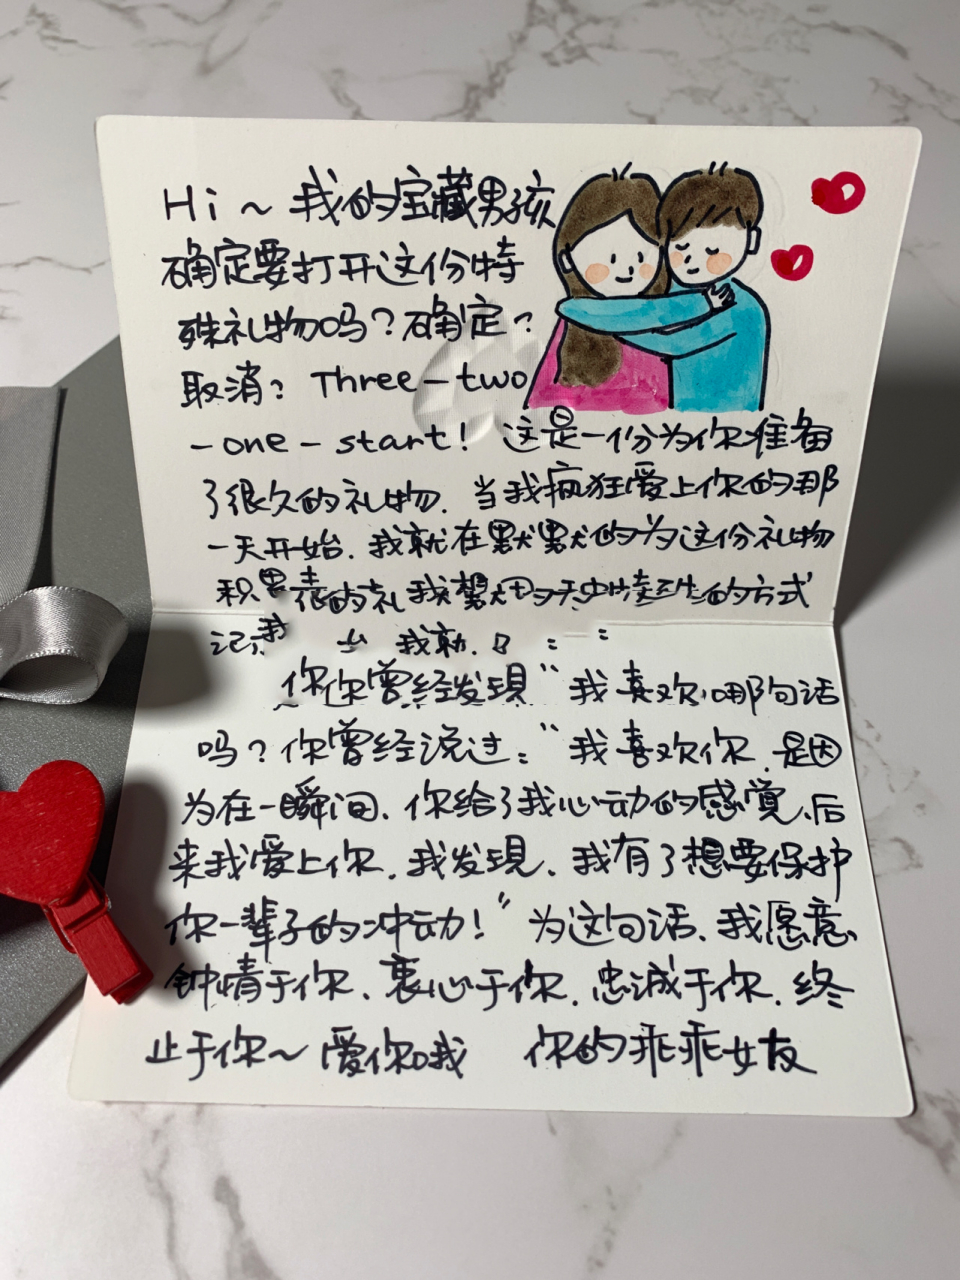 Hi～我的宝藏男孩
确定要打开这份特
殊礼物吗？确定？
取消？Three-two
-one-start！这是一份为你准备
了很久的礼物.当我疯狂爱上你的那
一天开始.我就在默默的为这份礼物
积 的 我 的方式
记 我
你你曾经发現“我喜欢哪句话
吗？你曾经说过：“我喜欢你.是因
为在一瞬间.你给了我心动的感覚、后
来我爱上你.我发現、我有了想要保护
你一辈子的冲动！”为这句话、我愿意
钟情于你、衷心于你.忠诚于你.终
止于你～爱你哦 你的乖乖女友